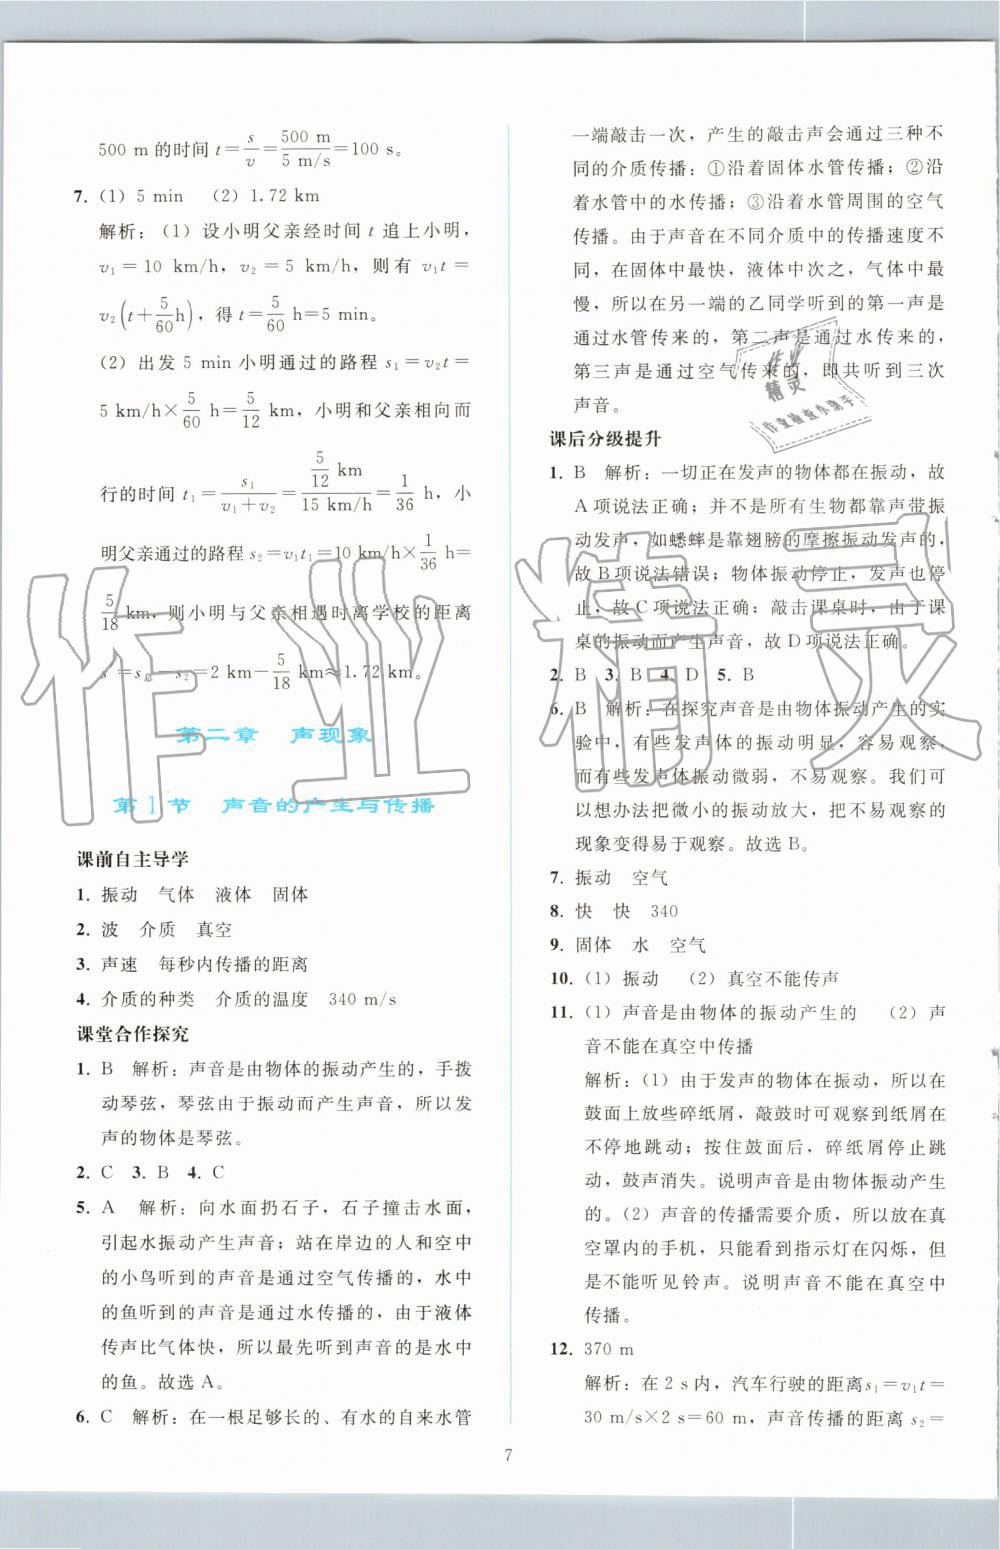 500 m的时间 t=s/v=500 m/5 m/s=100 s。
7. (1) 5 min (2) 1.72 km
解析：(1) 设小明父亲经时间 t 追上小明，
v₁=10 km/h，v₂=5 km/h，则有 v₁t=
v₂(t+5/60 h)，得 t=5/60 h=5 min。
(2) 出发 5 min 小明通过的路程 s₁=v₂t=
5 km/h×5/60 h=5/12 km，小明和父亲相向而
行的时间 t₁=s₁/(v₁+v₂)=(5/12 km)/(15 km/h)=1/36 h，小
明父亲通过的路程 s₂=v₁t₁=10 km/h×1/36 h=
5/18 km，则小明与父亲相遇时离学校的距离
s=s总-s₂=2 km-5/18 km≈1.72 km。
第二章 声现象
第1节 声音的产生与传播
课前自主导学
1. 振动 气体 液体 固体
2. 波 介质 真空
3. 声速 每秒内传播的距离
4. 介质的种类 介质的温度 340 m/s
课堂合作探究
1. B 解析：声音是由物体的振动产生的，手拨
动琴弦，琴弦由于振动而产生声音，所以发
声的物体是琴弦。
2. C 3. B 4. C
5. A 解析：向水面扔石子，石子撞击水面，
引起水振动产生声音；站在岸边的人和空中
的小鸟听到的声音是通过空气传播的，水中
的鱼听到的声音是通过水传播的，由于液体
传声比气体快，所以最先听到声音的是水中
的鱼。故选 A。
6. C 解析：在一根足够长的、有水的自来水管
一端敲击一次，产生的敲击声会通过三种不
同的介质传播：①沿着固体水管传播；②沿
着水管中的水传播；③沿着水管周围的空气
传播。由于声音在不同介质中的传播速度不
同，在固体中最快，液体中次之，气体中最
慢，所以在另一端的乙同学听到的第一声是
通过水管传来的，第二声是通过水传来的，
第三声是通过空气传来的，即共听到三次
声音。
课后分级提升
1. B 解析：一切正在发声的物体都在振动，故
A 项说法正确；并不是所有生物都靠声带振
动发声，如蟋蟀是靠翅膀的摩擦振动发声的，
故 B 项说法错误；物体振动停止，发声也停
止，故 C 项说法正确；敲击课桌时，由于课
桌的振动而产生声音，故 D 项说法正确。
2. B 3. B 4. D 5. B
6. B 解析：在探究声音是由物体振动产生的实
验中，有些发声体的振动明显，容易观察，
而有些发声体振动微弱，不易观察。我们可
以想办法把微小的振动放大，把不易观察的
现象变得易于观察。故选 B。
7. 振动 空气
8. 快 快 340
9. 固体 水 空气
10. (1) 振动 (2) 真空不能传声
11. (1) 声音是由物体的振动产生的 (2) 声
音不能在真空中传播
解析：(1) 由于发声的物体在振动，所以在
鼓面上放些碎纸屑，敲鼓时可观察到纸屑在
不停地跳动；按住鼓面后，碎纸屑停止跳
动，鼓声消失。说明声音是由物体振动产生
的。(2) 声音的传播需要介质，所以放在真
空罩内的手机，只能看到指示灯在闪烁，但
是不能听见铃声。说明声音不能在真空中
传播。
12. 370 m
解析：在 2 s 内，汽车行驶的距离 s₁=v₁t=
30 m/s×2 s=60 m，声音传播的距离 s₂=
7
作业精灵
作业
精灵
作业检查小助手